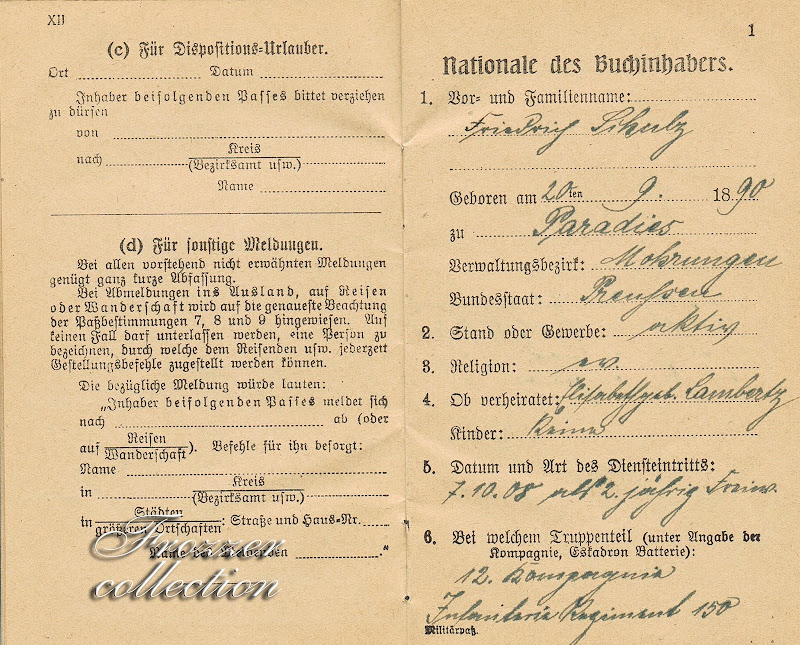 XII
(c) Für Dispositions-Urlauber.
Ort ... Datum ...
Inhaber beifolgenden Passes bittet verziehen
zu dürfen
von ...
nach ... Kreis
(Bezirksamt usw.)
Name ...
(d) Für sonstige Meldungen.
Bei allen vorstehend nicht erwähnten Meldungen
genügt ganz kurze Abfassung.
Bei Abmeldungen ins Ausland, auf Reisen
oder Wanderschaft wird auf die genaueste Beachtung
der Paßbestimmungen 7, 8 und 9 hingewiesen. Auf
keinen Fall darf unterlassen werden, eine Person zu
bezeichnen, durch welche dem Reisenden usw. jederzeit
Gestellungsbefehle zugestellt werden können.
Die bezügliche Meldung würde lauten:
„Inhaber beifolgenden Passes meldet sich
nach ... ab (oder
auf Reisen
Wanderschaft). Befehle für ihn besorgt:
Name ...
in ... Kreis
(Bezirksamt usw.)
in Städten
größeren Ortschaften: Straße und Haus-Nr. ...
Name des Meldenden ..."
Frozzer
collection
1
Nationale des Buchinhabers.
1. Vor- und Familienname:
Friedrich Schulz
Geboren am 20ten 9. 1890
zu Paradies
Verwaltungsbezirk: Mohrungen
Bundesstaat: Preussen
2. Stand oder Gewerbe: aktiv
3. Religion: ev.
4. Ob verheiratet: Elisabeth geb. Lambertz
Kinder: Keine
5. Datum und Art des Diensteintritts:
7.10.08 als 2. jährig Freiw.
6. Bei welchem Truppenteil (unter Angabe der
Kompagnie, Eskadron Batterie):
12. Kompagnie
Infanterie Regiment 150
Militärpaß.